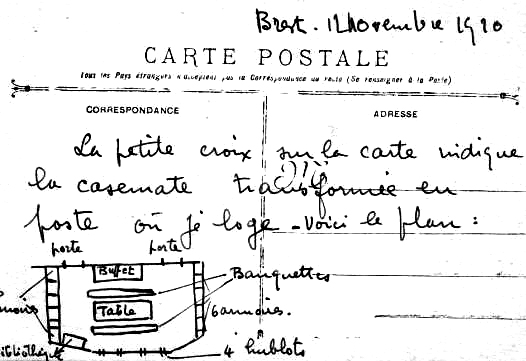 Brest. 12 Novembre 1910
CARTE POSTALE
Tous les Pays étrangers n'acceptent pas la Correspondance au recto (Se renseigner à la Poste)
CORRESPONDANCE
ADRESSE
La petite croix sur la carte indique
la casemate transformée en
poste où je loge - Voici le plan :
porte porte
Buffet
Banquettes
Table
6 armoires.
4 hublots